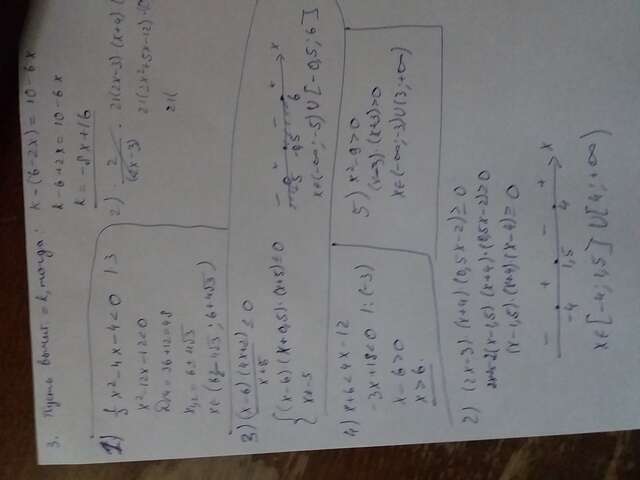 3. Пусть вычит. = k, тогда: k - (6-2x) = 10-6x
k - 6+2x = 10-6x
k = -8x+16
1) 1/3 x² - 4x - 4 < 0 | · 3
x² - 12x - 12 < 0
D/4 = 36+12 = 48
x₁,₂ = 6 ± 4√3
x ∈ (6 - 4√3 ; 6+4√3)
2)
21(2x-3) · (x+4) · (
21(2x²+5x-12) · (0
21(
3) (x-6)(4x+2)/x+5 ≤ 0
{ (x-6) · (x+0,5) · (x+5) ≤ 0
x ≠ -5
- + - + x
-5 -0,5 6
x ∈ (-∞; -5) ∪ [-0,5; 6]
4) x+6 < 4x-12
-3x+18 < 0 | : (-3)
x - 6 > 0
x > 6
5) x² - 9 > 0
(x-3) · (x+3) > 0
x ∈ (-∞; -3) ∪ (3; +∞)
2) (2x-3) · (x+4) · (0,5x-2) ≥ 0
2(x-1,5) · (x+4) · (0,5x-2) ≥ 0
(x-1,5) · (x+4) (x-4) ≥ 0
- + - + x
-4 1,5 4
x ∈ [-4; 1,5] ∪ [4; +∞)